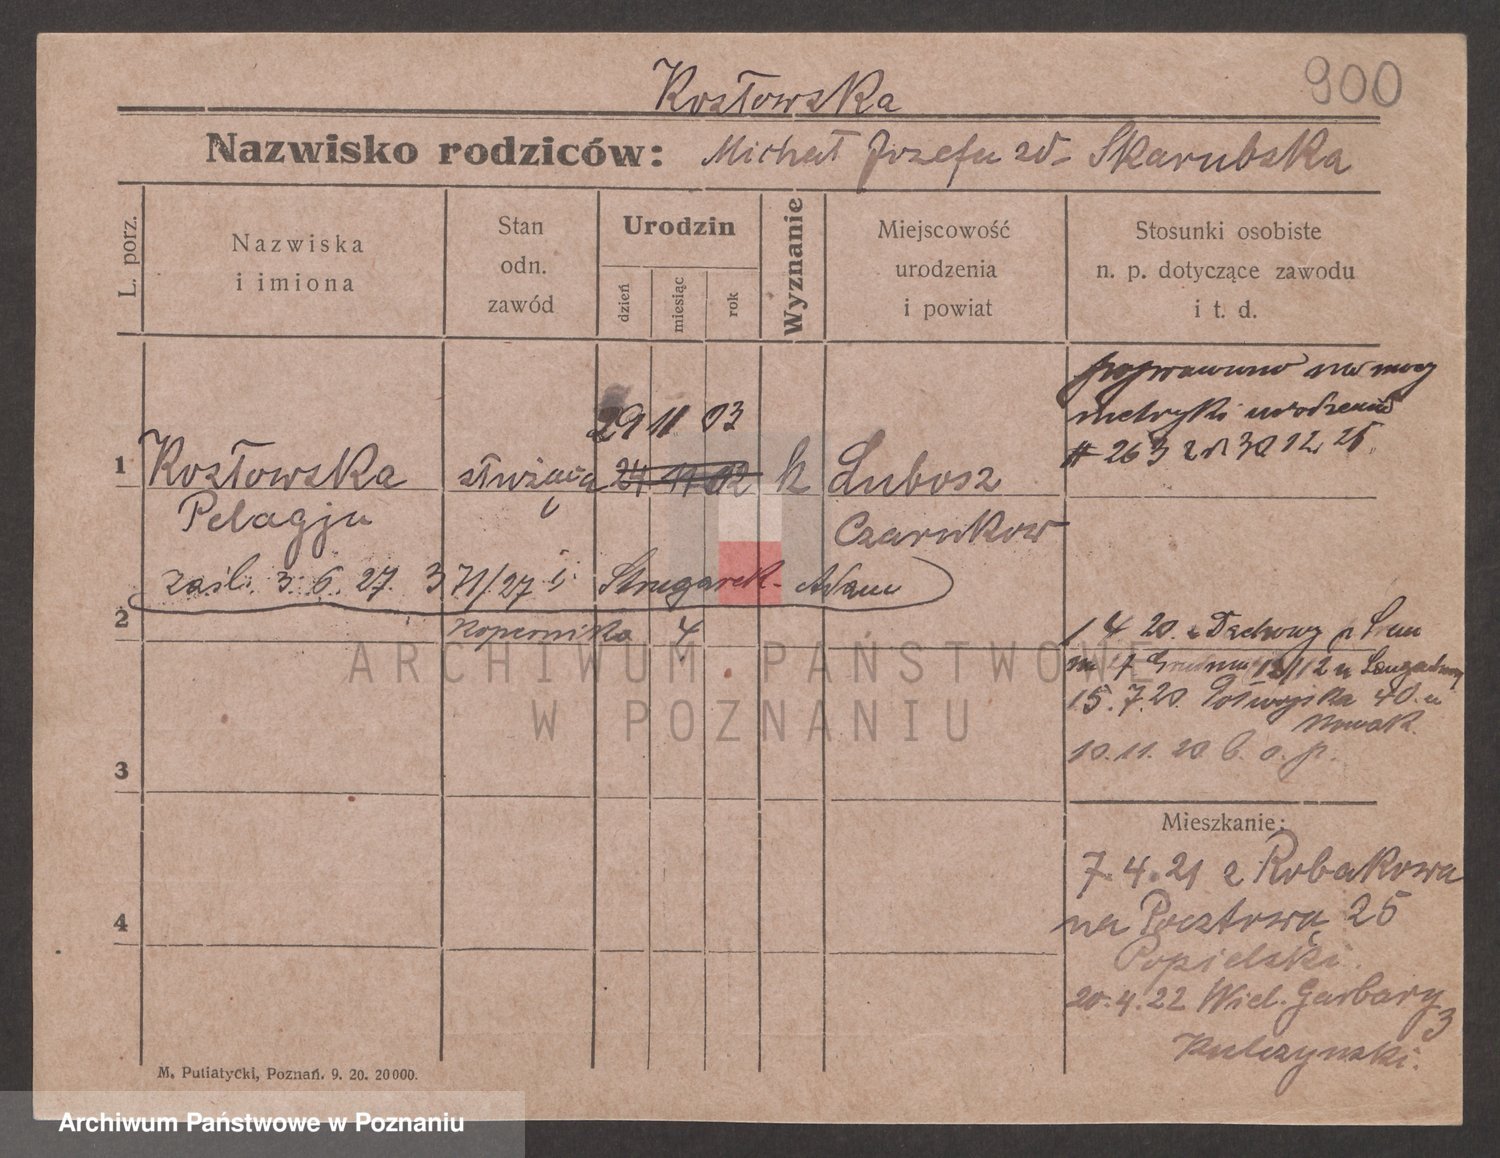 900
Kozłowska
Nazwisko rodziców: Michał Józefa zd. Skarubska
L. porz.
Nazwiska
i imiona
Stan
odn.
zawód
Urodzin
dzień
miesiąc
rok
Wyznanie
Miejscowość
urodzenia
i powiat
Stosunki osobiste
n. p. dotyczące zawodu
i t. d.
poprawiono na mocy
metryki urodzenia
# 263 z d. 30 12 25.
29 11 03
1 Kozłowska służąca 24 11 02 k Lubosz
Pelagja Czarnkow
zaśl. 3. 6. 27. 371/27 Strugarek Adam
2
Kopernika 4
1 4 20 z
15.7.20. 40. u
Nowak.
10.11.20 b. o. p.
3
Mieszkanie:
7.4.21 z Robakowa
na Pocztową 25
Popielski.
4
20.4.22 Wiel. Garbary
3
Kulczynski.
M. Putiatycki, Poznań. 9. 20. 20000.
ARCHIWUM PAŃSTWOWE
W POZNANIU
Archiwum Państwowe w Poznaniu